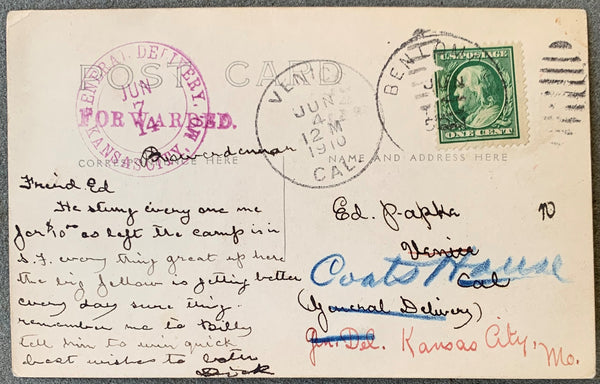 POST CARD
GENERAL DELIVERY,
JUN
7
14
KANSAS CITY, MO.
FORWARDED.
VENICE
JUN
4
12 M
1910
CAL.
BEN LOM
U.S. POSTAGE
ONE CENT
CORRESPONDENCE HERE
NAME AND ADDRESS HERE
Friend Ed
He stung every one me
for $10 00 as left the camp is in
S.F. every thing great up here
the big fellow is getting better
every day sure thing.
remember me to Billy
tell him to win quick
best wishes to
Dick
Ed. Papke
Venice
Cal
Coats House
(General Delivery)
Gen. Del. Kansas City,
Mo.